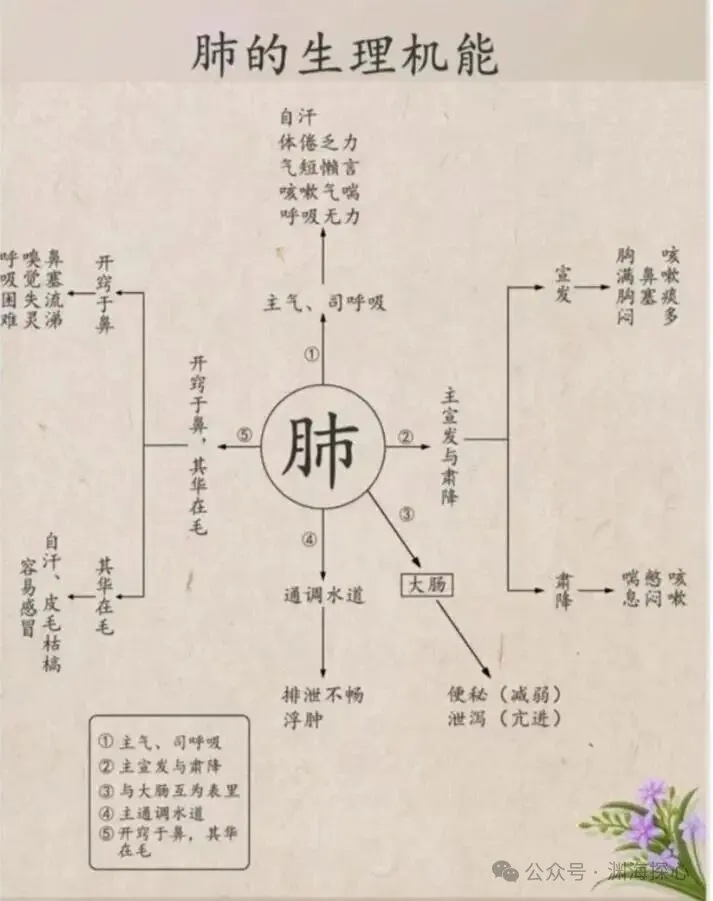 肺的生理机能
自汗
体倦乏力
气短懒言
咳嗽气喘
呼吸无力
主气、司呼吸
①
肺
②
主宣发与肃降
宣发
咳嗽痰多
鼻塞
胸满胸闷
肃降
咳嗽
憋闷
喘息
③
大肠
便秘（减弱）
泄泻（亢进）
④
通调水道
排泄不畅
浮肿
⑤
开窍于鼻，其华在毛
开窍于鼻
鼻塞流涕
嗅觉失灵
呼吸困难
其华在毛
自汗、皮毛枯槁
容易感冒
① 主气、司呼吸
② 主宣发与肃降
③ 与大肠互为表里
④ 主通调水道
⑤ 开窍于鼻，其华
在毛
公众号·渊海探心